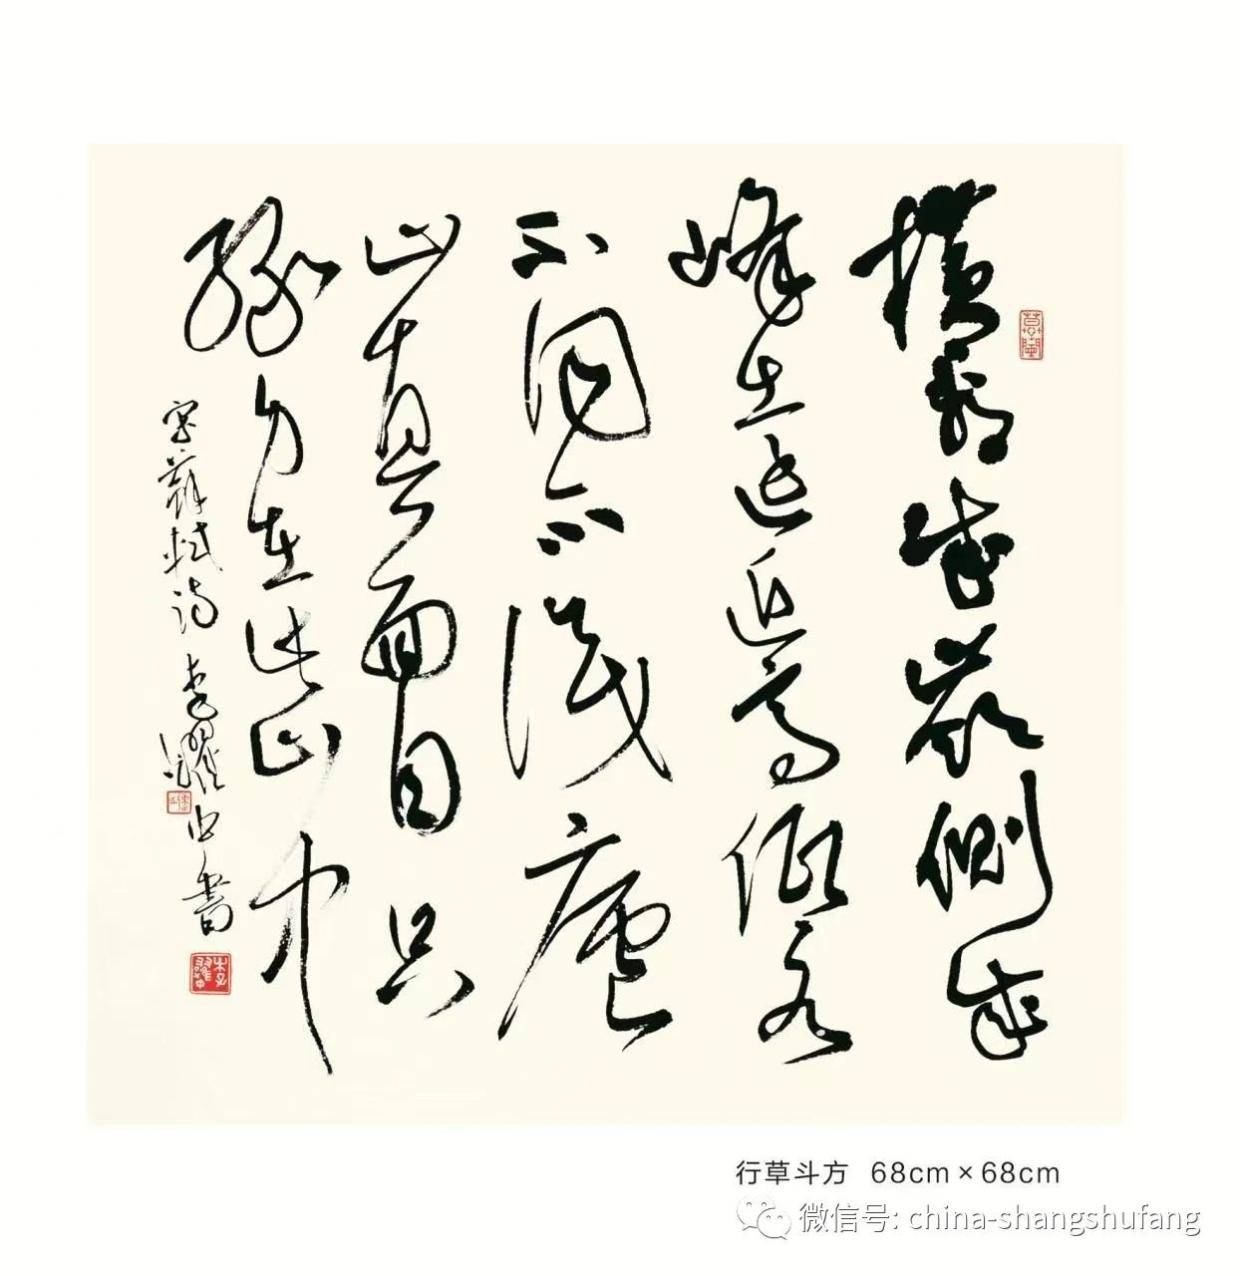 橫看成嶺側成
峰遠近高低各
不同不識廬
山真面目只
緣身在此山中
寫蘇軾詩 李 書
行草斗方 68cm×68cm
微信号: china-shangshufang